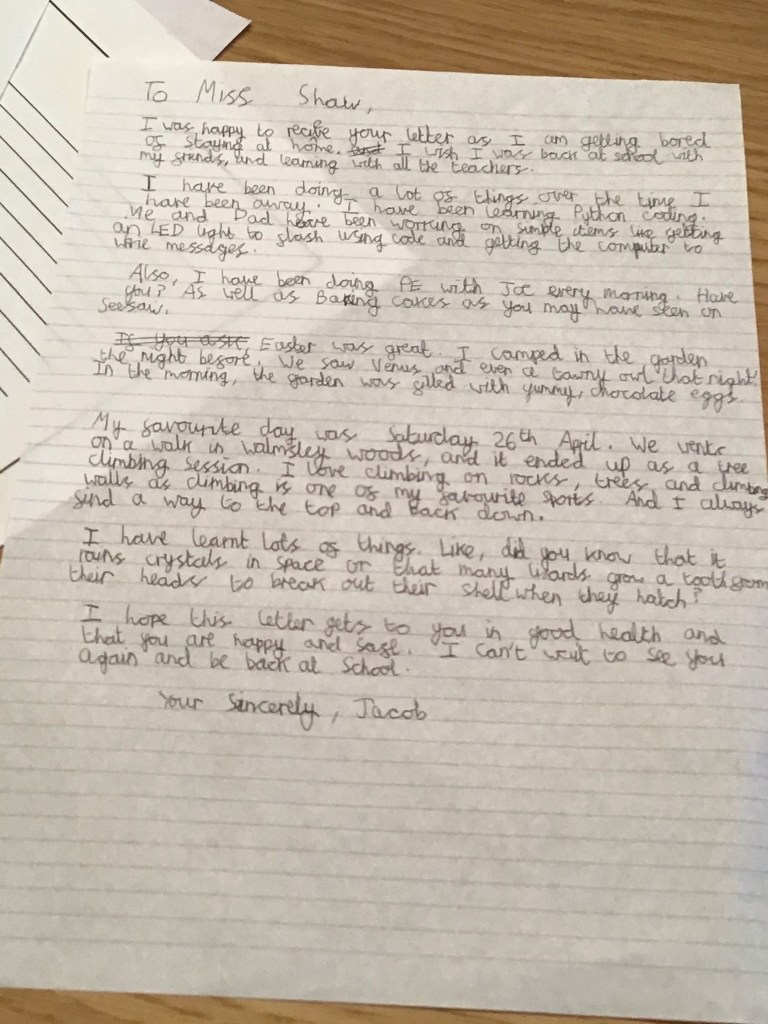 To Miss Shaw,
I was happy to recibe your letter as I am getting bored
of staying at home. I wish I was back at school with
my friends, and learning with all the teachers.
I have been doing a lot of things over the time I
have been away. I have been learning Python coding.
Me and Dad have been working on simple items like getting
an LED light to flash using code and getting the computer to
write messages.
Also, I have been doing PE with Joe every morning. Have
you? As well as Baking cakes as you may have seen on
Seesaw.
If you ask Easter was great. I camped in the garden
the night before, We saw Venus and even a tawny owl that night!
In the morning, the garden was filled with yummy, chocolate eggs.
My favourite day was Saturday 26th April. We went
on a walk in Walmsley woods, and it ended up as a tree
climbing session. I love climbing on rocks, trees and climbing
walls as climbing is one of my favourite sports. And I always
find a way to the top and back down.
I have learnt lots of things. Like, did you know that it
rains crystals in space or that many lizards grow a tooth from
their heads to break out their shell when they hatch?
I hope this letter gets to you in good health and
that you are happy and safe. I can't wait to see you
again and be back at school.
Your Sincerely, Jacob